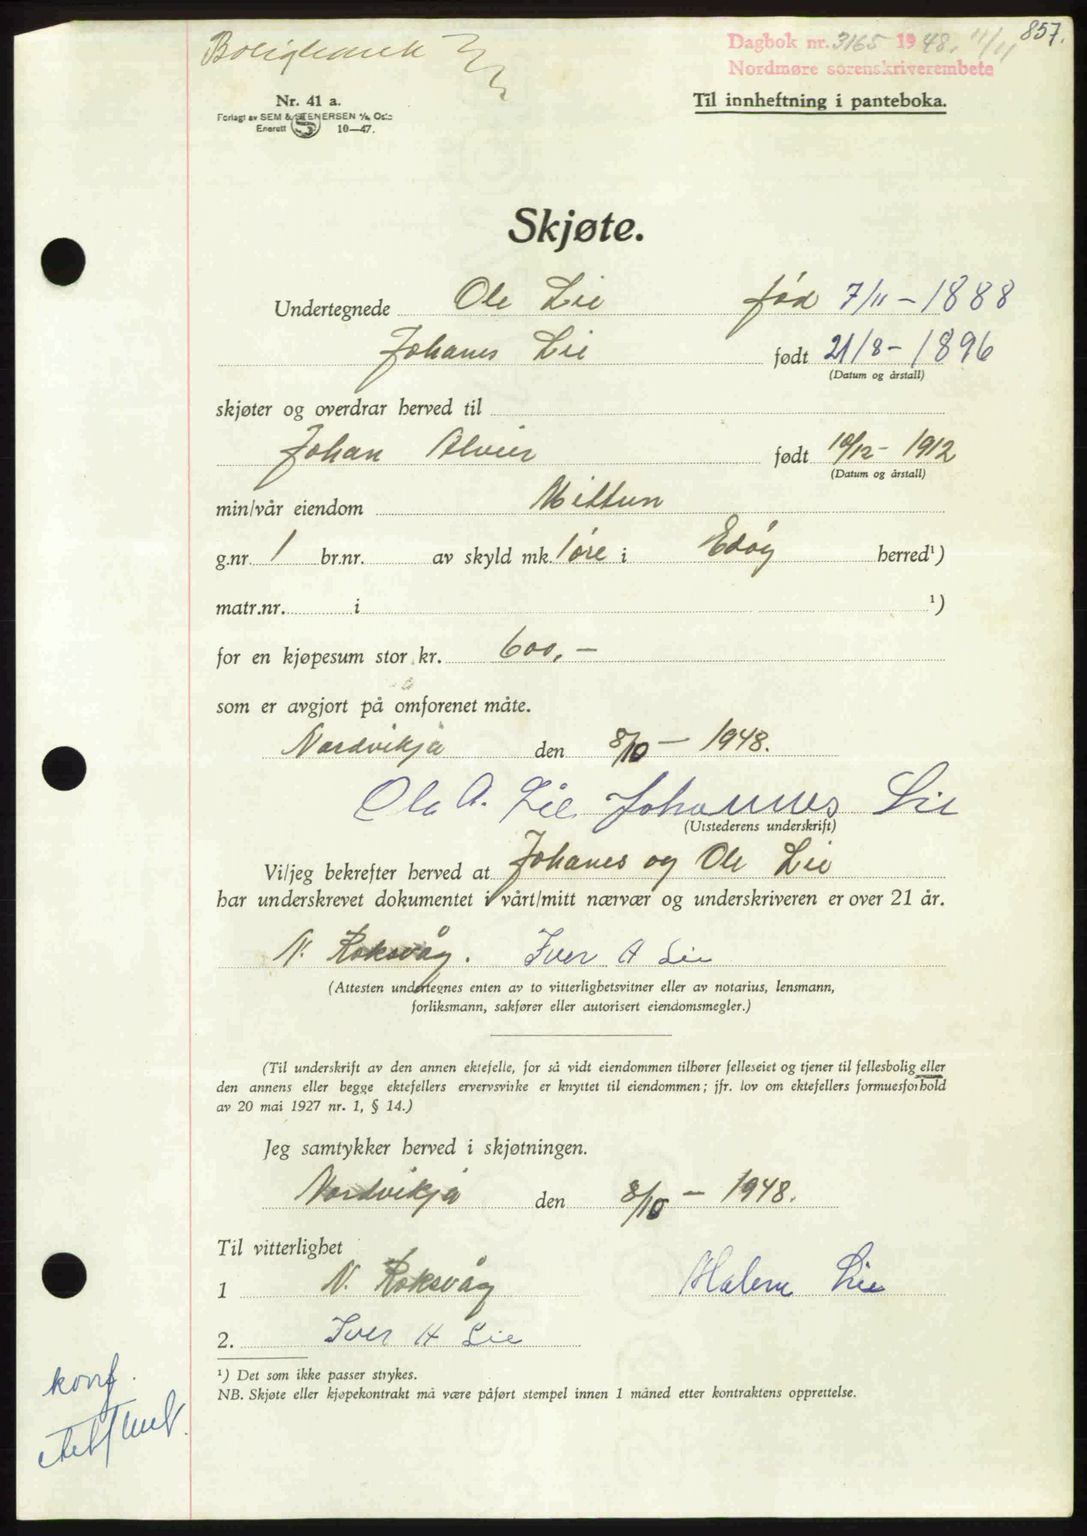 857.
Dagbok nr. 3165 1948. 11/11
Nordmøre sorenskriverembete
Til innheftning i panteboka.
Nr. 41 a.
Forlagt av SEM & STENERSEN A/S, Oslo
Enerett 10—47.
Skjøte.
Undertegnede Ole Lie fød 7/11 – 1888
Johanes Lie født 21/8 – 1896
(Datum og årstall)
skjøter og overdrar herved til
Johan Alvier født 10/12 – 1912
(Datum og årstall)
min/vår eiendom Mittun
g.nr. 1 br.nr. av skyld mk. 1 øre i Edøy herred¹)
matr.nr. i ¹)
for en kjøpesum stor kr. 600,–
som er avgjort på omforenet måte.
Nordvikja den 8/10 – 1948.
Ole A. Lie Johannes Lie
(Utstederens underskrift)
Vi/jeg bekrefter herved at Johanes og Ole Lie
har underskrevet dokumentet i vårt/mitt nærvær og underskriveren er over 21 år.
N. Roksvåg. Iver A Lie
(Attesten undertegnes enten av to vitterlighetsvitner eller av notarius, lensmann,
forliksmann, sakfører eller autorisert eiendomsmegler.)
(Til underskrift av den annen ektefelle, for så vidt eiendommen tilhører felleseiet og tjener til fellesbolig eller
den annens eller begge ektefellers ervervsvirke er knyttet til eiendommen; jfr. lov om ektefellers formuesforhold
av 20 mai 1927 nr. 1, § 14.)
Jeg samtykker herved i skjøtningen.
Nordvikja den 8/10 – 1948.
Til vitterlighet
1 N. Roksvåg Lie
2. Iver A Lie
¹) Det som ikke passer strykes.
NB. Skjøte eller kjøpekontrakt må være påført stempel innen 1 måned etter kontraktens opprettelse.
konf.